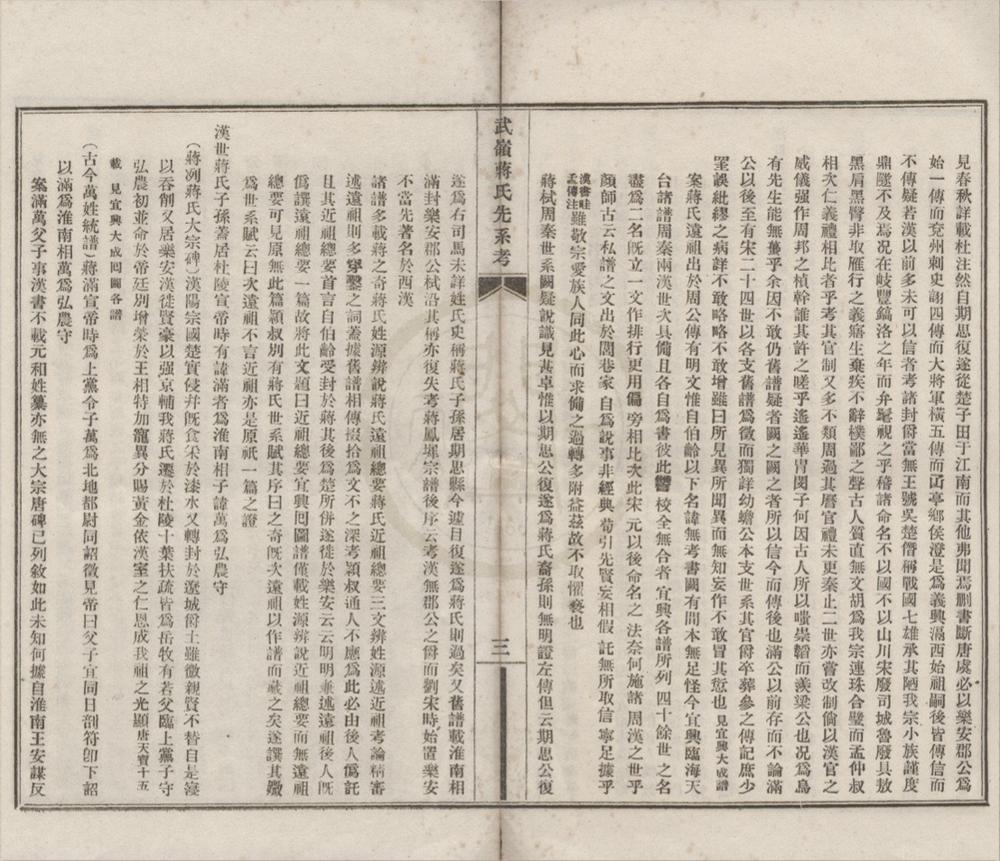 見春秋詳載杜注然自期思復遂從楚子田于江南而其他弗聞焉刪書斷唐虞必以樂安郡公爲
始一傳而兗州刺史詡四傳而大將軍橫五傳而㓰亭鄉侯澄是爲義興滆西始祖嗣後皆傳信而
不傳疑若漢以前多未可以信者考諸封爵當無王號吳楚僭稱戰國七雄承其陋我宗小族謹度
鼎隧不及焉况在岐豐鎬洛之年而弁髦視之乎稽諸命名不以國不以山川宋廢司城魯廢具敖
黑肩黑臀非取雁行之義寤生棄疾不辭樸鄙之聲古人質直無文胡爲我宗連珠合璧而孟仲叔
相次仁義禮相比者乎考其官制又多不類周過其曆官禮未更秦止二世亦嘗改制倘以漢官之
威儀强作周邦之楨幹誰其許之嗟乎遙遙華冑閔子何因古人所以嗤崇韜而羨梁公也况爲烏
有先生能無蠥乎余因不敢仍舊譜疑者闕之闕之者所以信今而傳後也滿公以前存而不論滿
公以後至有宋二十四世以各支舊譜爲徵而獨詳幼蟾公本支世系其官爵卒葬參之傳記庶少
罣誤紕繆之病詳不敢略略不敢增雖曰所見異所聞異而無知妄作不敢冒其愆也見宜興大成譜
案蔣氏遠祖出於周公傳有明文惟自伯齡以下名諱無考書闕有間本無足怪今宜興臨海天
台諸譜周秦兩漢世次具備且各自爲書彼此讐校全無合者宜興各譜所列四十餘世之名
盡爲二名既立一文作排行更用偏旁相比次此宋元以後命名之法奈何施諸周漢之世乎
顏師古云私譜之文出於閭巷家自爲說事非經典苟引先賢妄相假託無所取信寧足據乎
漢書眭孟傳注雖敬宗愛族人同此心而求備之過轉多附益茲故不取懼褻也
蔣栻周秦世系闕疑說識見甚卓惟以期思公復遂爲蔣氏裔孫則無明證左傳但云期思公復
武嶺蔣氏先系考
三
遂爲右司馬未詳姓氏史稱蔣氏子孫居期思縣今遽目復遂爲蔣氏則過矣又舊譜載淮南相
滿封樂安郡公栻沿其稱亦復失考蔣鳳墀宗譜後序云考漢無郡公之爵而劉宋時始置樂安
不當先著名於西漢
諸譜多載蔣之奇蔣氏姓源辨說蔣氏遠祖總要蔣氏近祖總要三文辨姓源述近祖考論精審
述遠祖則多穿鑿之詞蓋據舊譜相傳掇拾爲文不之深考穎叔通人不應爲此必由後人僞託
且其近祖總要首言自伯齡受封於蔣其後爲楚所併遂徙於樂安云云明明兼述遠祖後人既
僞譔遠祖總要一篇故將此文題曰近祖總要宜興囘圖譜僅載姓源辨說近祖總要而無遠祖
總要可見原無此篇穎叔別有蔣氏世系賦其序曰之奇既次遠祖以作譜而藏之矣遂譔其嬓
爲世系賦云曰次遠祖不言近祖亦是原祇一篇之證
漢世蔣氏子孫蓍居杜陵宣帝時有諱滿者爲淮南相子諱萬爲弘農守
（蔣洌蔣氏大宗碑）漢陽宗國楚實侵幷既食采於漆水又轉封於遼城爵土雖微親賢不替自是寖
以吞削又居樂安漢徙賢豪以强京輔我蔣氏遷於杜陵十葉扶疏皆爲岳牧有若父臨上黨子守
弘農初並命於帝廷別增榮於王相特加寵異分賜黃金依漢室之仁恩成我祖之光顯唐天寶十五
載 見宜興大成囘圖各譜
（古今萬姓統譜）蔣滿宣帝時爲上黨令子萬爲北地都尉同詔徵見帝曰父子宜同日剖符卽下詔
以滿爲淮南相萬爲弘農守
案滿萬父子事漢書不載元和姓纂亦無之大宗唐碑已列敘如此未知何據自淮南王安謀反